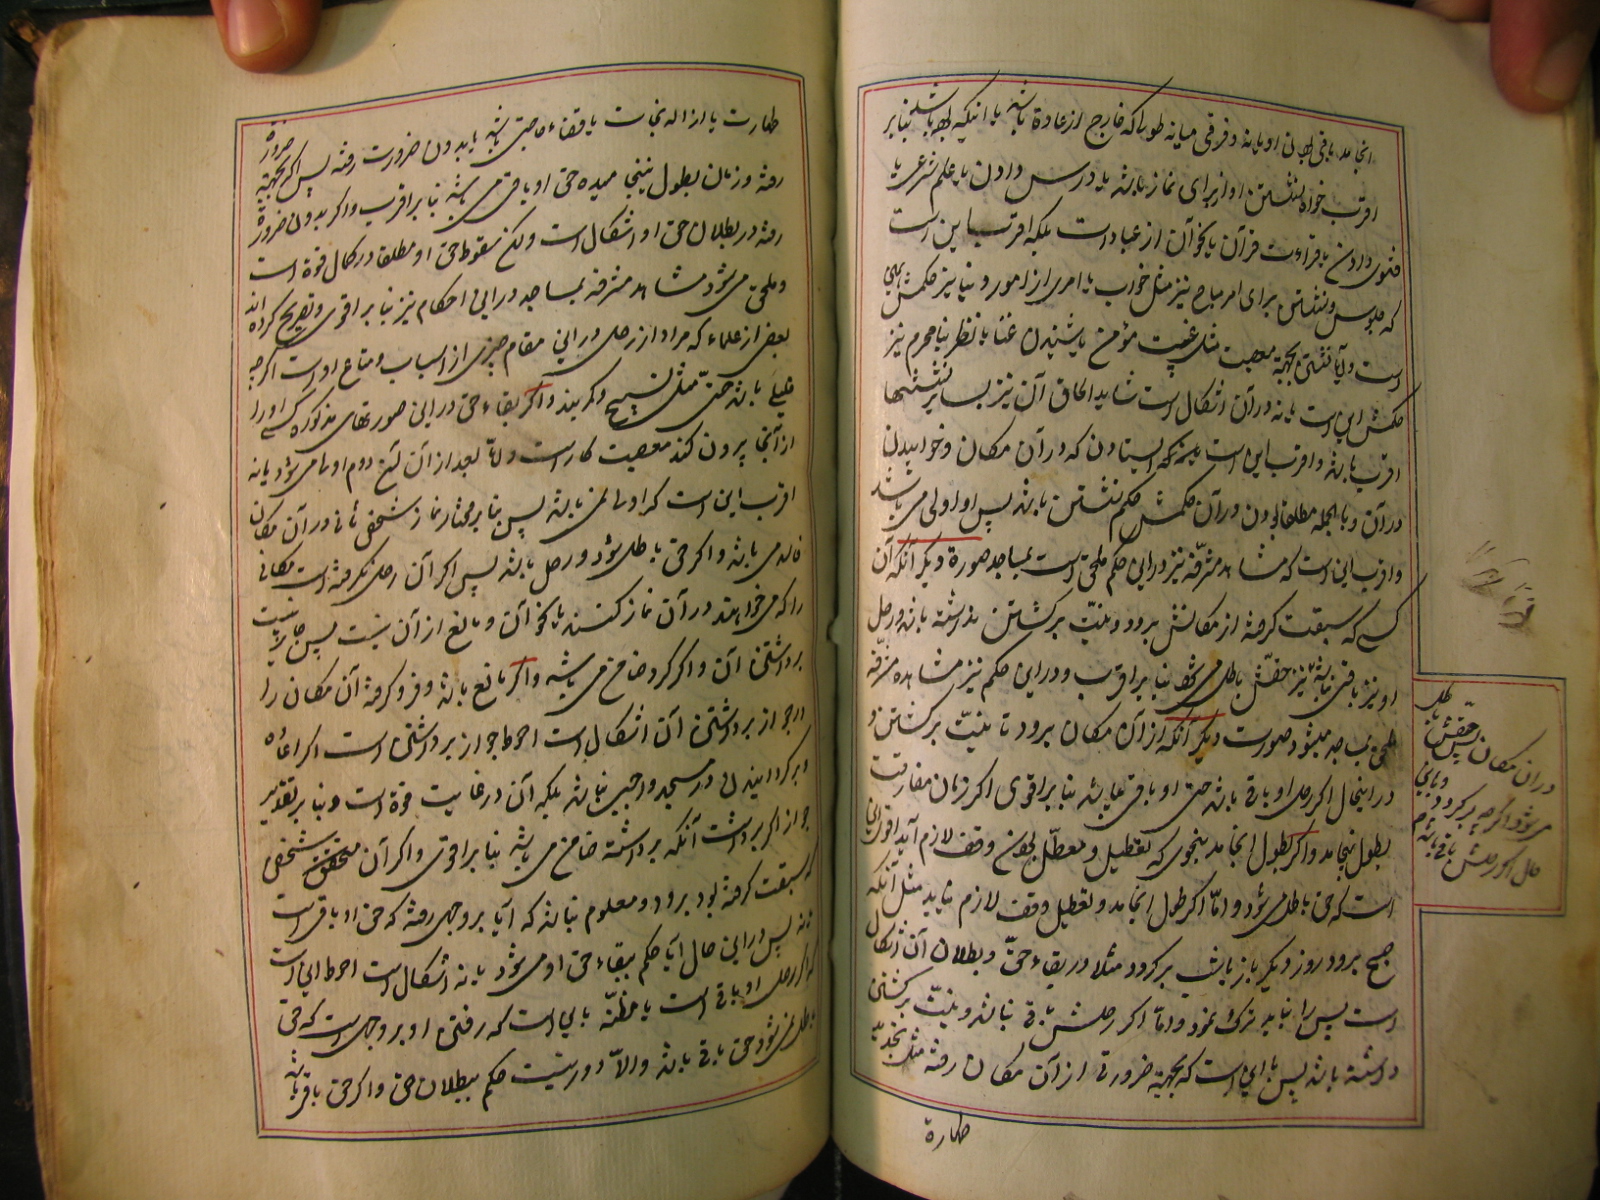 انجامد یا فی و فرقی میانه طولی که خارج از عادة باشد یا اینکه بنا بر
اقرب خواه نشستن او از برای نماز باشد یا درس دادن یا علم شرعی یا
فتوی دادن یا قراءت قرآن یا نحو آن از عبادات بلکه اقرب این است
که جلوس و نشستن برای امر مباح نیز مثل خواب یا امری از امور دنیا نیز حکمش
است و آیا نشستن بجهة معصیت مثل غیبت مؤمن یا شنیدن غنا یا نظر بنا محرم نیز
حکمش این است یا نه در آن اشکال است شاید الحاق آن نیز بسایر نشستنها
اقرب باشد و اقرب این است ایستادن که در آن مکان و خوابیدن
در آن و بالجمله مطلقا بودن در آن حکمش حکم نشستن باشد پس او اولی می باشد
و اقرب این است که مشاهد مشرّفه نیز در این حکم ملحق است بمساجد صورة دیگر آنکه آن
کسی که سبقت گرفته از مکانش برود و نیّت برگشتن نداشته باشد و رحل
او نیز باقی نباشد نیز حقّش باطل می شود بنا بر اقرب و در این حکم نیز مشاهد مشرّفه
ملحق بمساجد میشود صورت دیگر آنکه از آن مکان برود با نیّت برگشتن و
در اینحال اگر رحل او باقی باشد حق او باقی میباشد بنا بر اقوی اگر زمان مفارقت
بطول نینجامد و اگر بطول انجامد بنحوی که تعطیل و معطّل بودن وقف لازم آید اقوی این
است که حق باطل می شود و امّا اگر طول انجامد و تعطیل وقف لازم نیاید مثل آنکه
صبح برود و روز دیگر باز باید برگردد مثلا در بقاء حقّ و بطلان آن اشکال
است پس را نباید ترک نمود و امّا اگر رحلش باقی نباشد و نیّت برگشتن
داشته باشد پس یا این است که بجهة ضرورتی از آن مکان رفته مثل تجدید
طهارة
در آن مکان پس حقّش باطل
می شود اگرچه برگردد و باین
حال اگر رحلش باقی باشد
طهارت یا ازاله نجاست یا قضاء حاجتی باشد یا بدون ضرورت رفته پس اگر بجهة ضرورة
رفته و زمان بطول نینجامیده حق او باقی می باشد بنا بر اقرب و اگر بدون ضرورة
رفته در بطلان حق او اشکال است ولکن سقوط حق او مطلقا در کمال قوة است
و ملحق می شود مشاهد مشرفه بمساجد در این احکام نیز بنا بر اقوی و تصریح کرده اند
بعض از علماء که مراد از رحل در این مقام چیزی از اسباب و متاع او است اگرچه
قلیلی باشد حتّی مثل تسبیح و کمربند و اگر بقاء حق در این صورتهای مذکوره کسی او را
از آنجا بیرون کند معصیت کار است و لا بعد از آن دوم اولی می شود یا نه
اقرب این است که اولی نمی باشد پس بنا بر مختار نماز شخص ثانی در آن مکان
فاسد می باشد و اگر حق باطل شود و رحل باشد پس اگر آن رحل نگرفته است مکانی
را که می خواهند در آن نماز کنند یا نحو آن و مانع از آن نیست پس جایز نیست
برداشتن آن و اگر کرد ضامن می باشد و اگر مانع باشد و فرو گرفته آن مکان را
در جواز برداشتن آن اشکال است احوط جواز برداشتن است اگر اعاده
و برگردانیدن در مسجد واجب نباشد بلکه آن در غایت قوة است و بنا بر تقدیر
جواز اگر برداشت آنکه برداشته ضامن می باشد بنا بر اقوی و اگر آن شخصی
که سبقت گرفته بود برود و معلوم نباشد که آیا بر وجهی رفته که حق او باقی است
یا نه پس در این حال آیا حکم ببقاء حق او می شود یا نه اشکال است احوط این است
که اگر رحل او باقی است یا مظنّه باین است که رفتن او بر وجهی است که حق
باطل نمی شود حق باقی باشد و الّا دور نیست حکم ببطلان حق و اگر حق باقی باشد